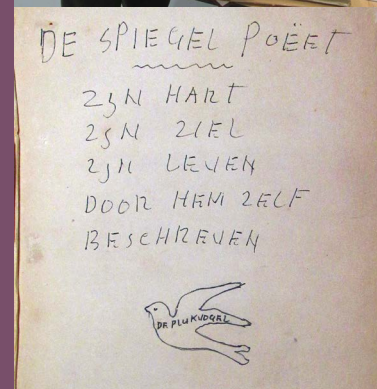 DE SPIEGEL POËET
ZijN HART
ZijN ZIEL
ZijN LEVEN
DOOR HEM ZELF
BESCHREVEN
DE PLUKVOGEL